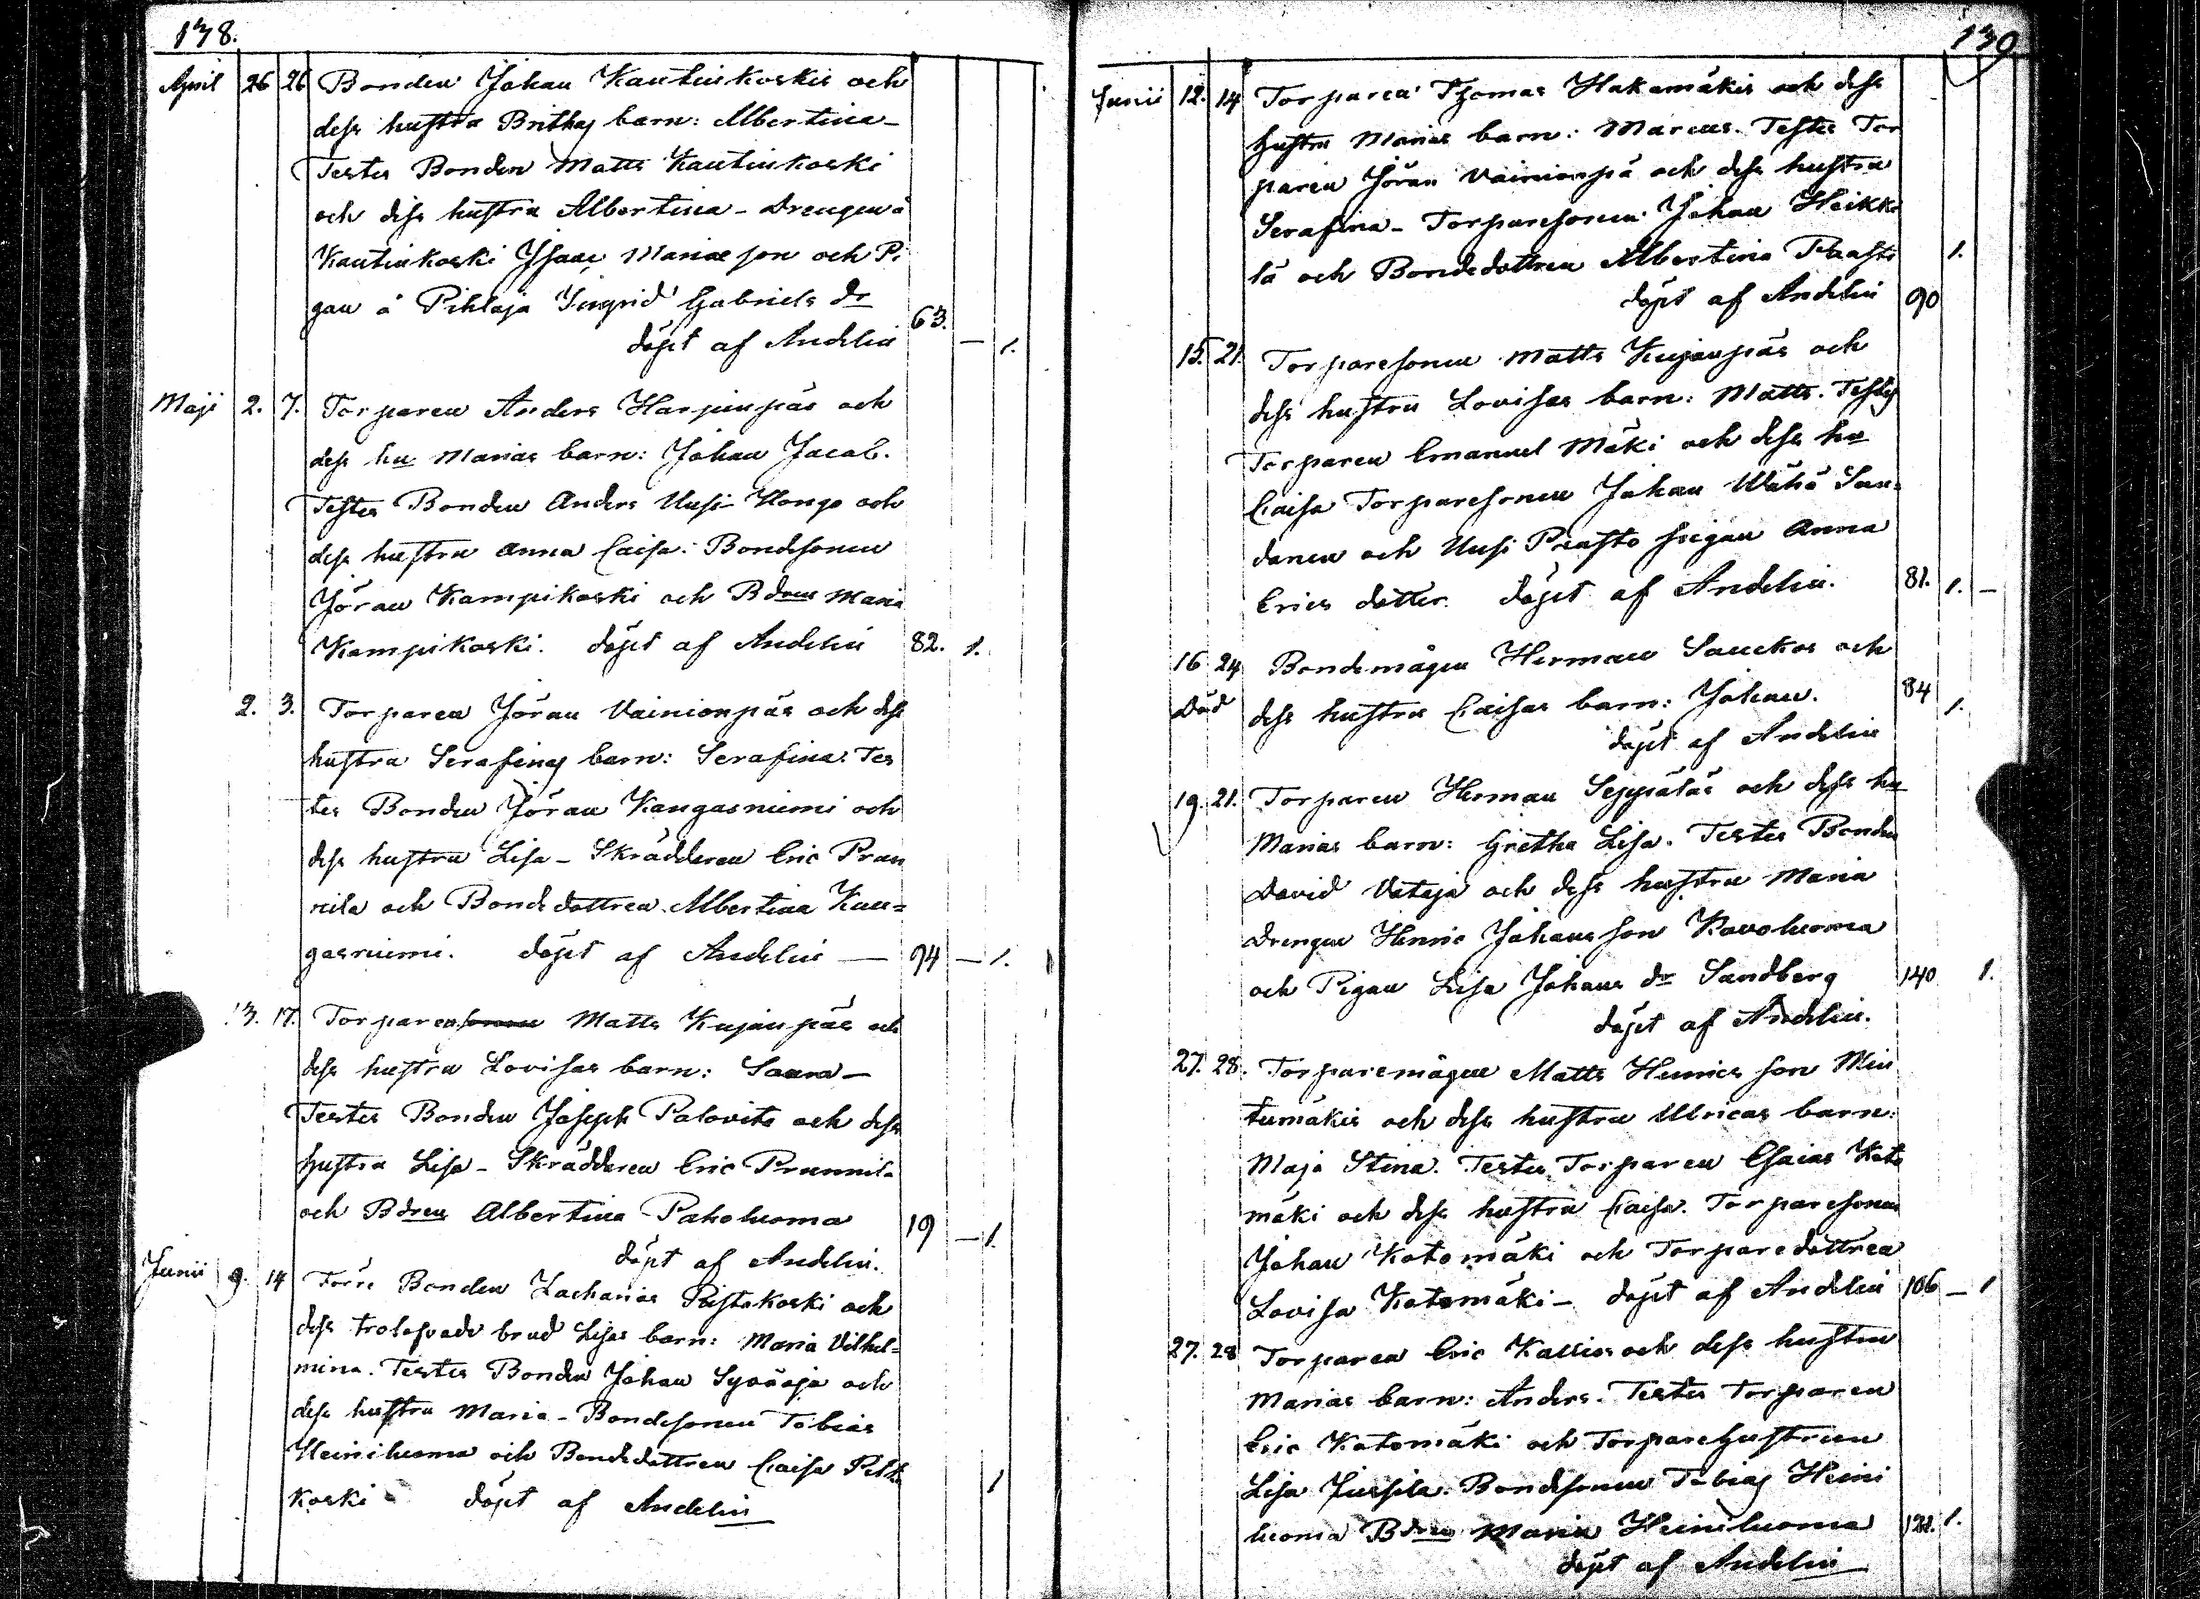 138.
April 26 26 Bonden Johan Kautinkoskis och
dess hustru Brithas barn: Albertina –
Testes Bonden Matts Kautinkoski
och dess hustru Albertina – Drengen å
Kautinkoski Isaac Mariæ son och Pi
gan å Pihlaja Ingrid Gabriels dr
döpt af Andelin 63. – 1.
Maji 2. 7. Torparen Anders Harjunpäs och
dess hu Marias barn: Johan Jacob.
Testes Bonden Anders Uusi-Hongo och
dess hustru Anna Caisa. Bondesonen
Jöran Kampikoski och Bdren Maria
Kampikoski. döpt af Andelin 82. 1.
2. 3. Torparen Jöran Vainionpäs och dess
hustru Serafinas barn: Serafina. Tes
tes Bonden Jöran Kangasniemi och
dess hustru Lisa – Skrädderen Eric Prun
nila och Bondedottren Albertina Kan=
gasniemi. döpt af Andelin — 94 – 1.
13. 17. Torparen Matts Kujanpäs och
dess hustru Lovisas barn: Sanna –
Testes Bonden Joseph Palovits och dess
hustru Lisa – Skrädderen Eric Prunnila
och Bdren Albertina Paholuoma 19 – 1.
döpt af Andelin.
Junii 9. 14 Förre Bonden Zacharias Pistokoski och
dess trolofvade brud Lisas barn: Maria Vilhel=
mina. Testes Bonden Johan Syväoja och
dess hustru Maria – Bondesonen Tobias
Heiniluoma och Bondedottren Caisa Pelto
koski döpt af Andelin 1
139
Junii 12. 14 Torparen Thomas Hakamäkis och dess
hustru Marias barn: Marcus. Testes Tor
paren Jöran Vainionpä och dess hustru
Serafina – Torparesonen Johan Heikki
lä och Bondedottren Albertina Prasto 1.
döpt af Andelin 90
15. 21. Torparesonen Matts Kujanpäs och
dess hustru Lovisas barn: Matts. Testes
Torparen Emanuel Mäki och dess hu
Caisa Torparesonen Johan Wähä San=
danen och Uusi Prasto pigan Anna
Erics dotter. döpt af Andelin. 81. 1. –
16 24 Bondemågen Herman Sauckos och
Död dess hustru Caisas barn: Johan. 84 1.
döpt af Andelin
19. 21. Torparen Herman Seppäläs och dess hu
Marias barn: Gretha Lisa. Testes Bonden
David Vataja och dess hustru Maria
Drengen Henric Johans son Kavoluoma
och Pigan Lisa Johans dr Sandberg 140 1.
döpt af Andelin.
27. 28. Torparemågen Matts Henrics son Min
tumäkis och dess hustru Ulricas barn:
Maja Stina. Testes Torparen Esaias Koto
mäki och dess hustru Caisa. Torparesonen
Johan Kotomäki och Torparedottren
Lovisa Kotomäki – döpt af Andelin 106 – 1
27. 28 Torparen Eric Kallios och dess hustru
Marias barn: Anders. Testes Torparen
Eric Kotomäki och Torparehustrun
Lisa Jussila. Bondesonen Tobias Heini
luoma Bdren Maria Heiniluoma 121. 1.
döpt af Andelin